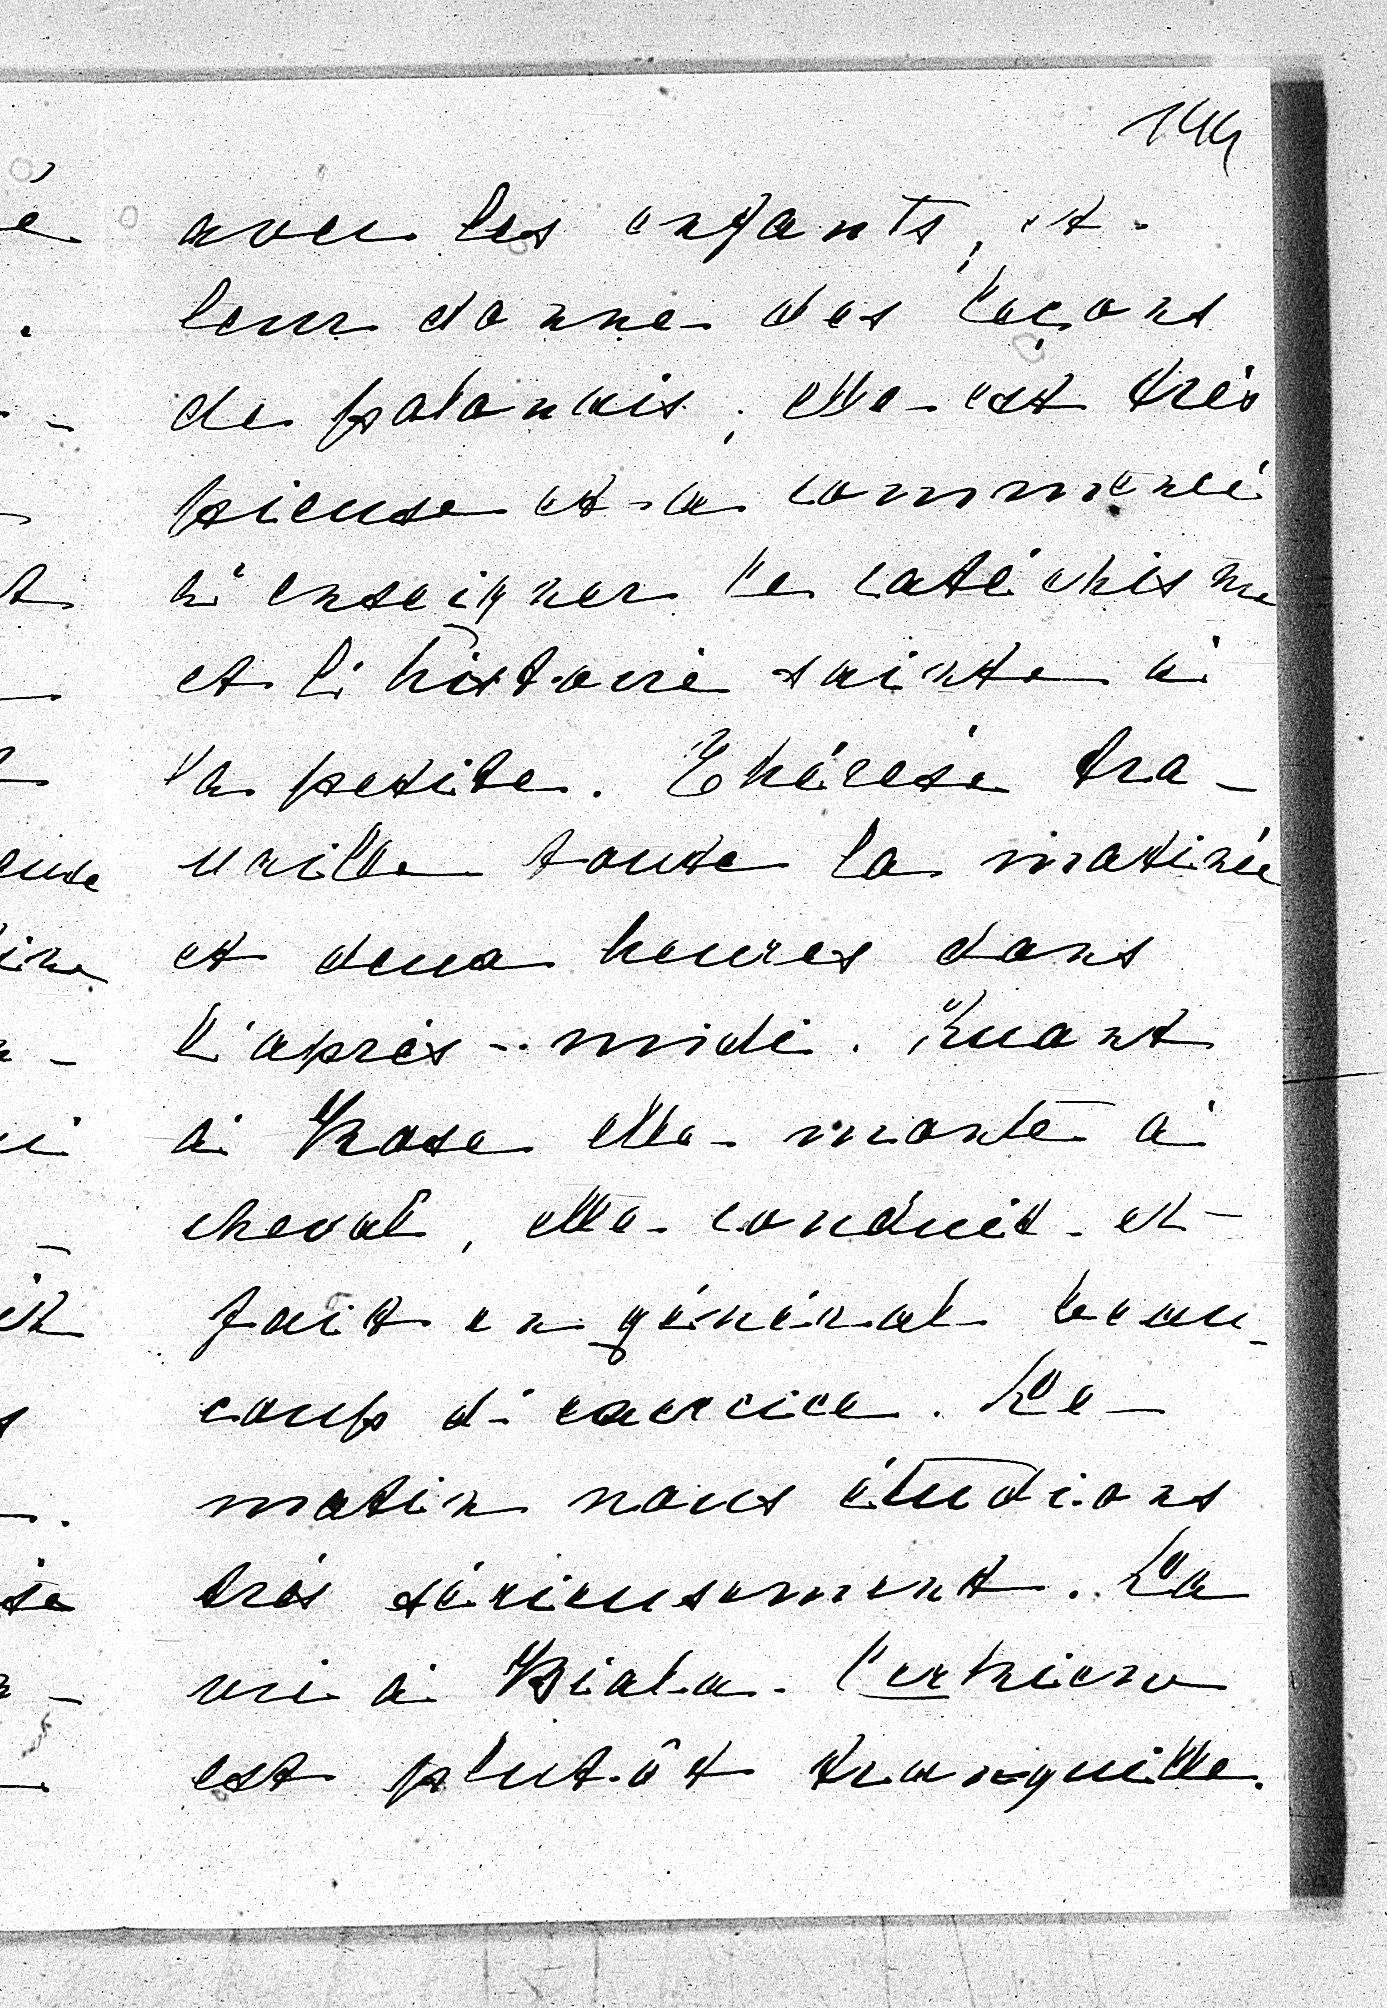 144
avec les enfants, et
leur donne des leçons
de polonais, elle est très
pieuse et a commencé
à enseigner le catéchisme
et l'histoire sainte à
la petite. Thérèse tra-
vaille toute la matinée
et deux heures dans
l'après-midi. Quant
à Rose elle monte à
cheval, elle conduit et
fait en général beau-
coup d'exercice. Le
matin nous étudions
très sérieusement. La
vie à Biala
est plutôt tranquille.